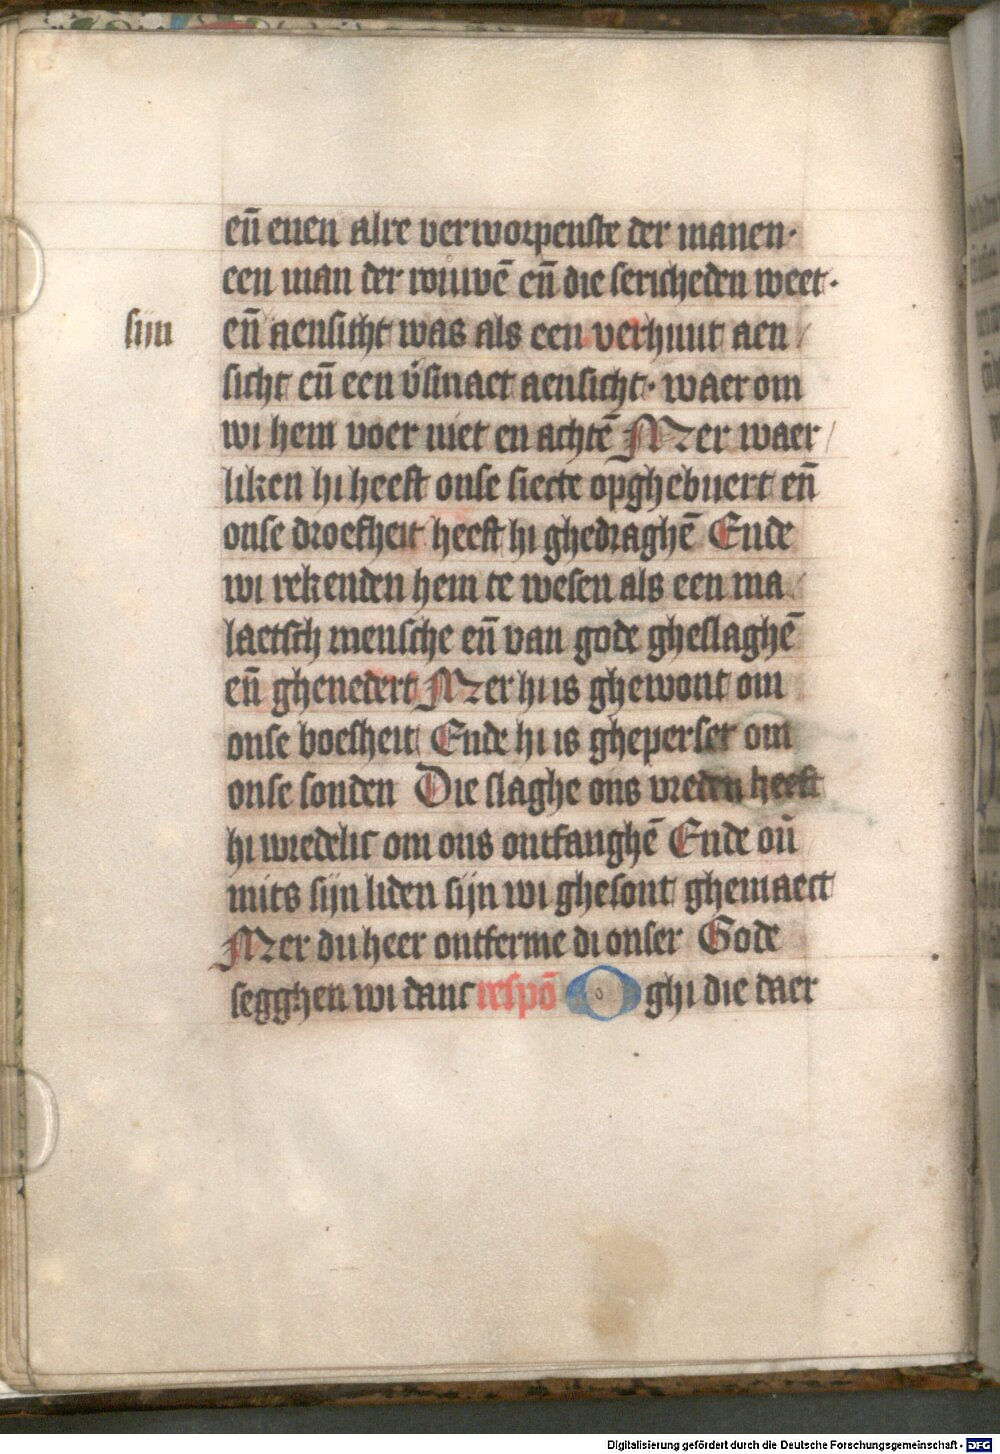 en̄ enen alre verworpenste der manen·
een man der rouwē en̄ die sericheden weet·
sijn
en̄ aensicht was als een verhuut aen/
sicht en̄ een v̄smaet aensicht· waer om
wi hem voer niet en achtē Mer waer/
liken hi heeft onse siecte opghebuert en̄
onse droefheit heeft hi ghedraghē Ende
wi rekenden hem te wesen als een ma/
laetsch mensche en̄ van gode gheslaghē
en̄ ghenedert Mer hi is ghewont om
onse boesheit Ende hi is gheperset om
onse sonden Die slaghe ons vreden heeft
hi wredelic om ons ontfanghē Ende ou̅
mits sijn liden sijn wi ghesont ghemaect
Mer du heer ontferme di onser Gode
segghen wi danc respō O ghi die daer
Digitalisierung gefördert durch die Deutsche Forschungsgemeinschaft - DFG